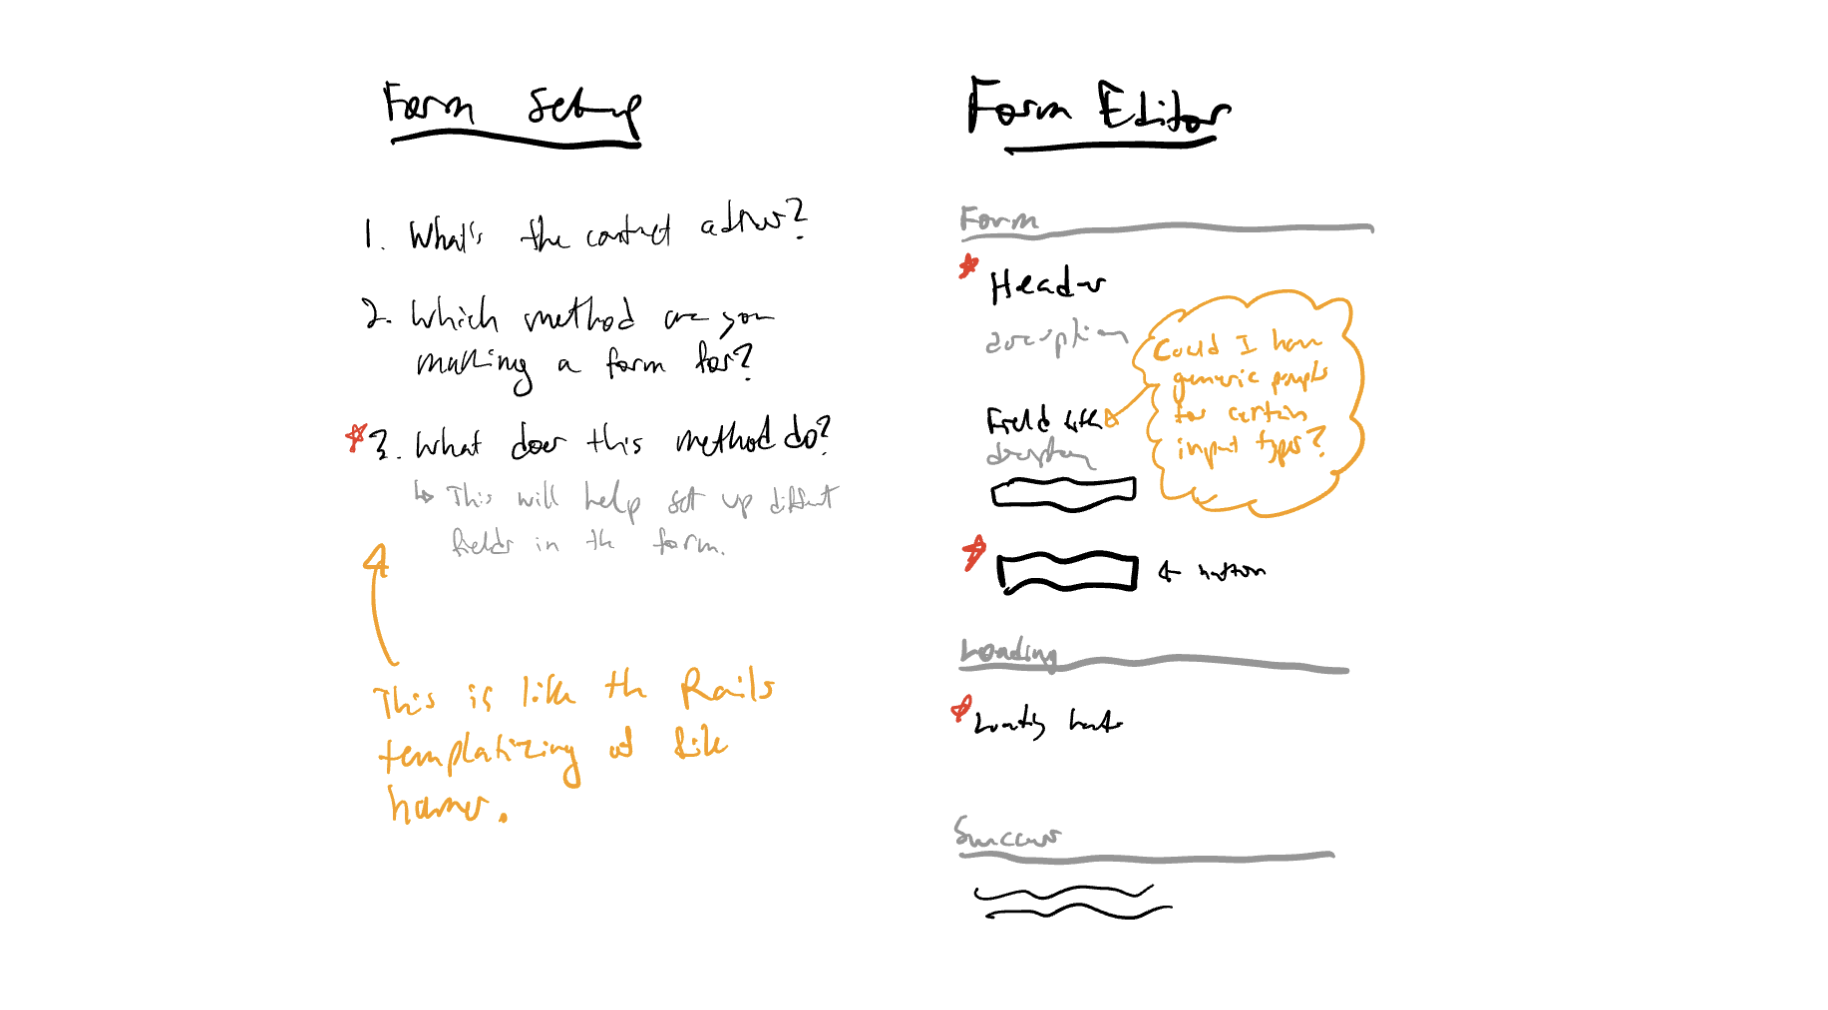 Form Setup
1. What's the contract address?
2. Which method are you
making a form for?
3. What does this method do?
↳ This will help set up different
fields in the form.
This is like the Rails
templatizing of file
names.
Form Editor
Form
Header
description
Field title
description
Could I have
generic
for certain
input types?
← button
Loading
Loading
Success